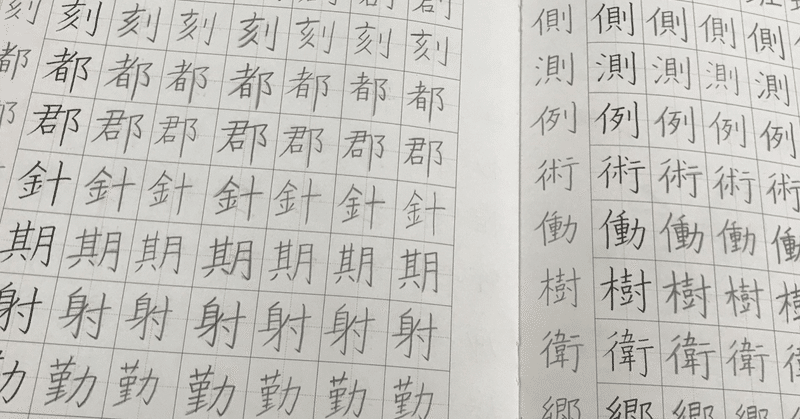 刻刻刻刻刻刻刻刻
都都都都都都都都
郡郡郡郡郡郡郡
針針針針針針針
期期期期期期期
射射射射射射射
勤勤勤勤勤勤
側側側側側
測測測測測
例例例例例
術術術術術
働働働働働
樹樹樹樹樹
衛衛衛衛
郷郷郷郷